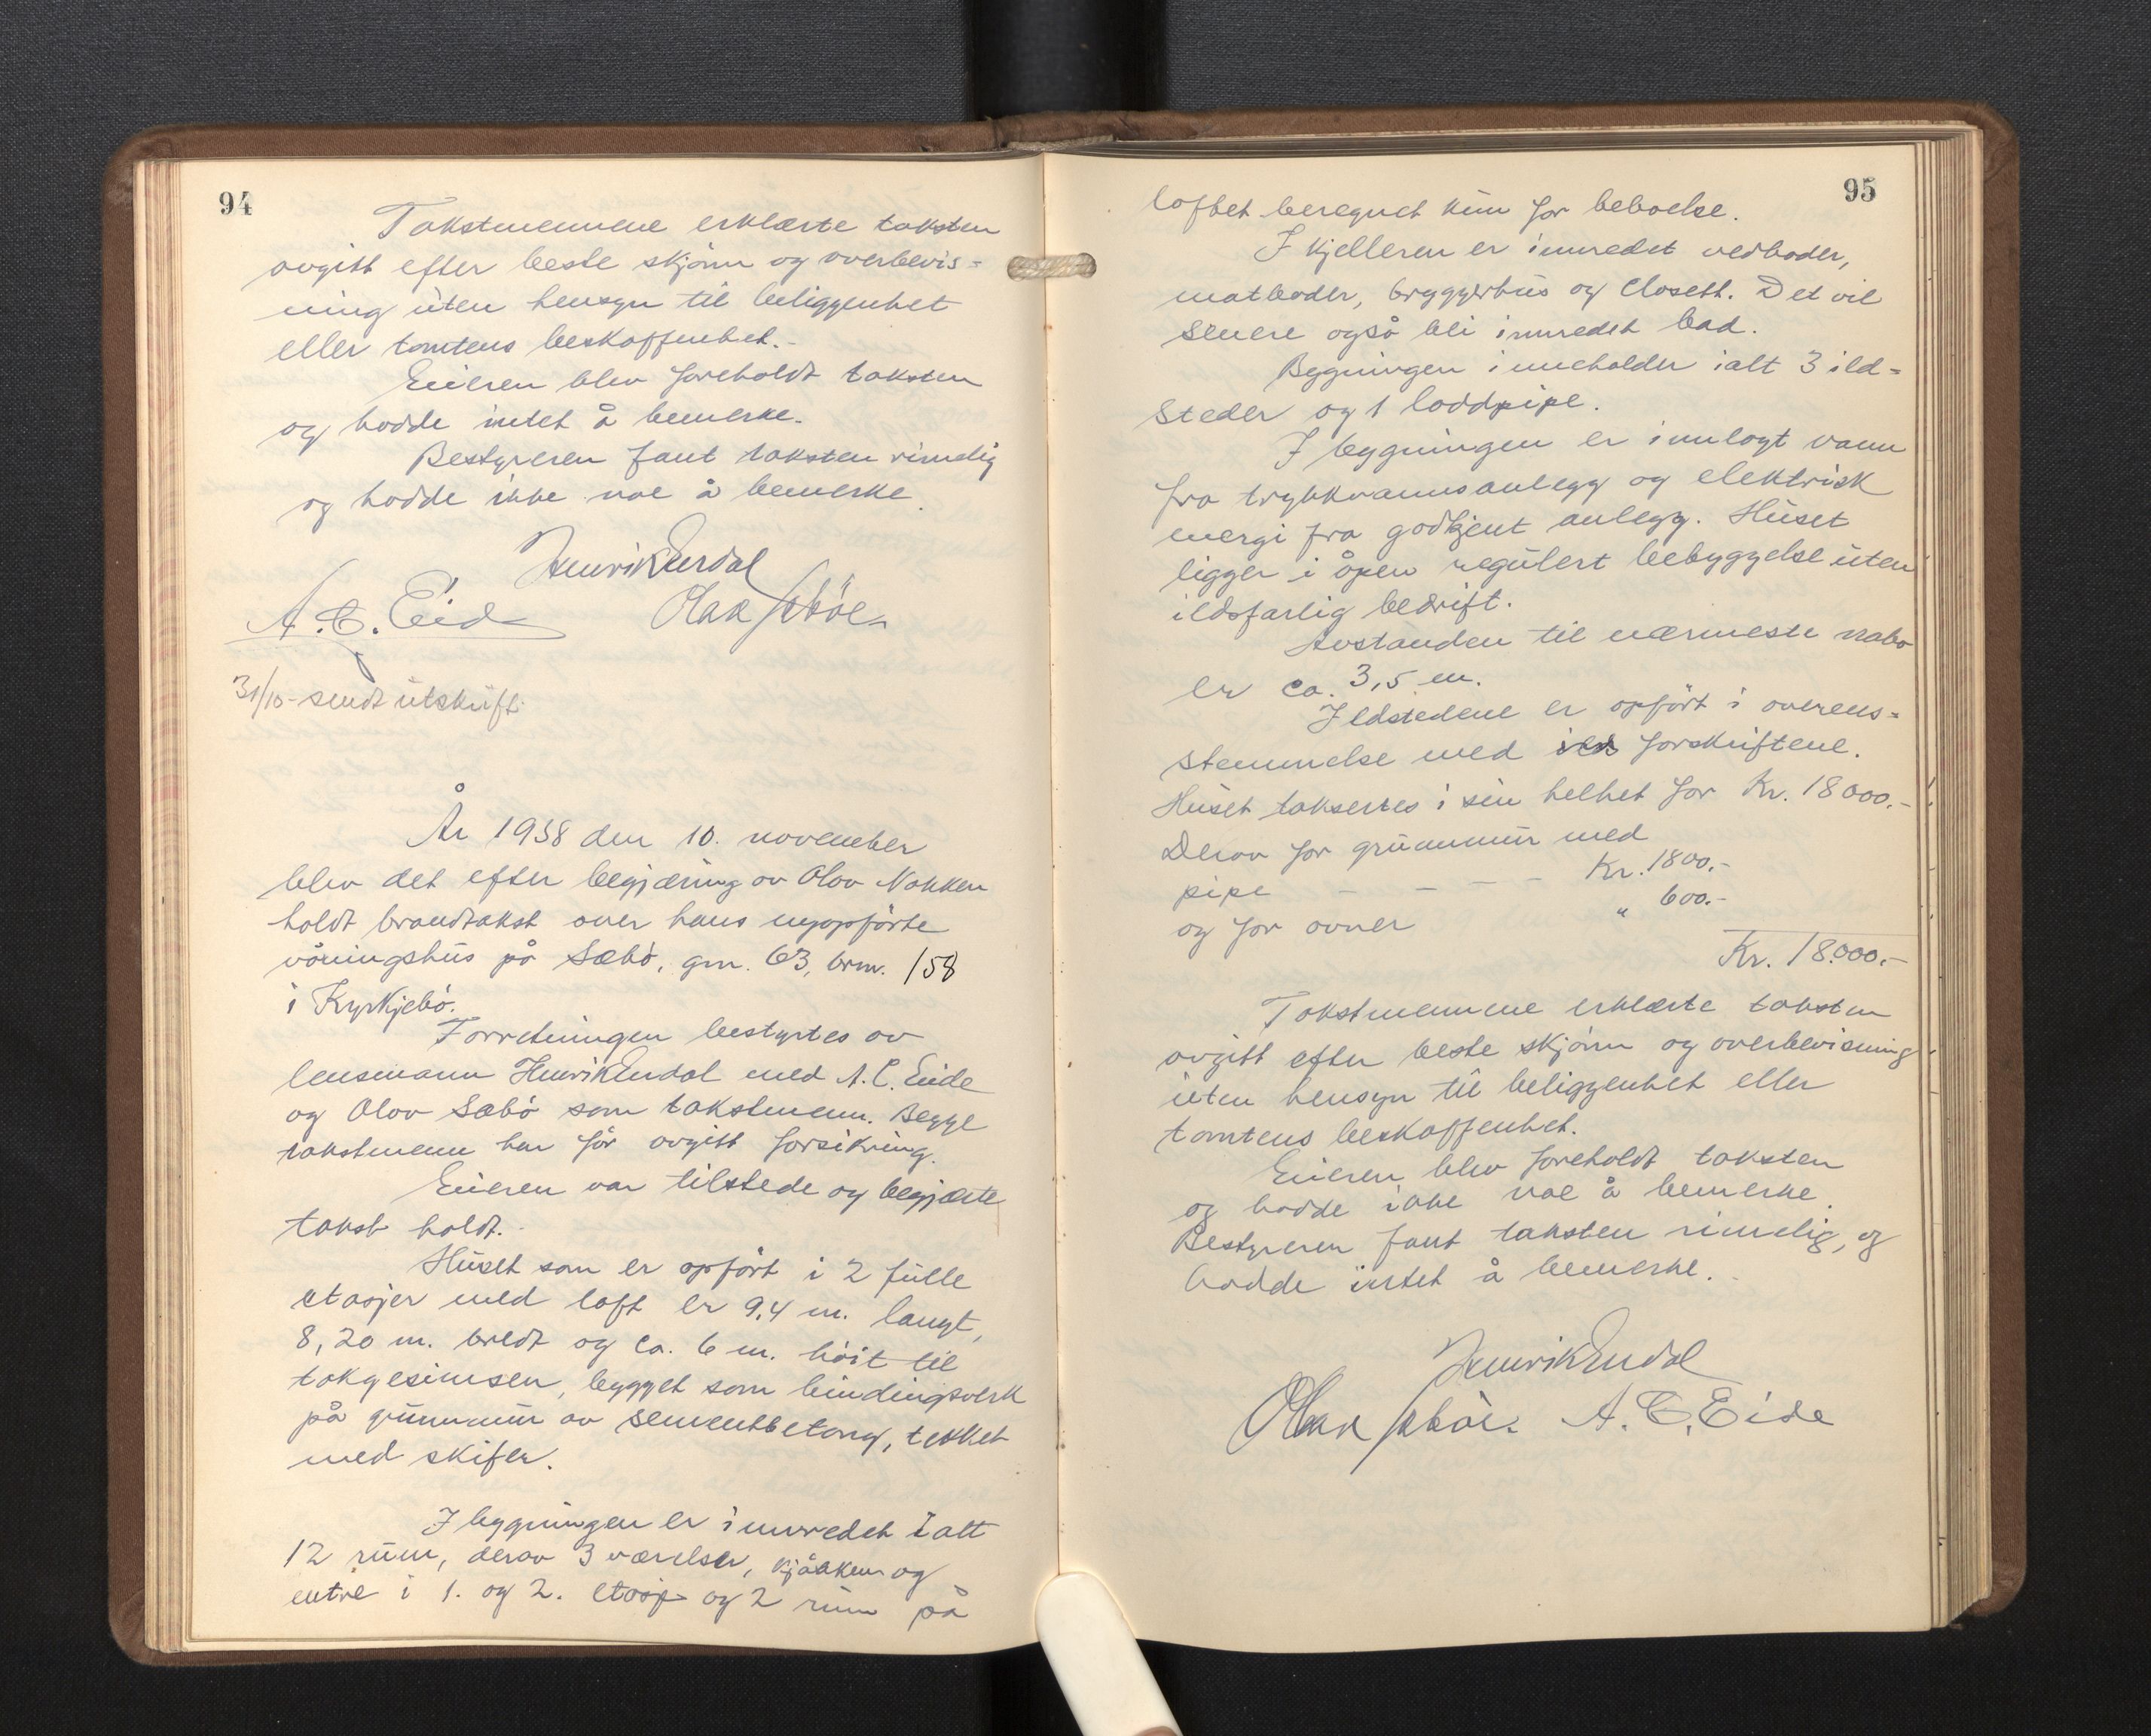 94
Takstmennene erklærte taksten
avgitt efter beste skjønn og overbevis=
ning uten hensyn til beliggenhet
eller tomtens beskaffenhet.
Eieren blev foreholdt taksten
og hadde intet å bemerke.
Bestyreren fant taksten rimelig
og hadde ikke noe å bemerke.
Henrik Erdal
A. C. Eide Olav Sæbøe
31/10 - sendt utskrift.
År 1938 den 10. november
blev det efter begjæring av Olav Nakken
holdt brandtakst over hans nyoppførte
våningshus på Sæbø, gnr. 63, brnr. 158
i Kyrkjebø.
Forretningen bestyrtes av
lensmann Henrik Erdal med A. C. Eide
og Olav Sæbø som takstmenn. Begge
takstmenn har før avgitt forsikring.
Eieren var tilstede og begjærte
takst holdt.
Huset som er opført i 2 fulle
etasjer med loft er 9,4 m. langt,
8,20 m. bredt og ca. 6 m. høit til
takgesimsen, bygget som bindingsverk
på grunnmur av sementbetong, tekket
med skifer.
I bygningen er innredet ialt
12 rum, derav 3 værelser, kjøkken og
entre i 1. og 2. etasje og 2 rum på
95
loftet beregnet kun for beboelse.
I kjelleren er innredet vedboder,
matboder, bryggerhus og closett. Det vil
senere også bli innredet bad.
Bygningen inneholder ialt 3 ild=
steder og 1 loddpipe.
I bygningen er innlagt vann
fra trykkvannsanlegg og elektrisk
energi fra godkjent anlegg. Huset
ligger i åpen regulert bebyggelse uten
ildsfarlig bedrift.
Avstanden til nærmeste nabo
er ca. 3,5 m.
Ildstedene er opført i overens=
stemmelse med forskriftene.
Huset taksertes i sin helhet for Kr. 18000.-
Derav for grunnmur med
pipe - - - - Kr. 1800.-
og for ovner " 600.-
Kr. 18.000.-
Takstmennene erklærte taksten
avgitt efter beste skjønn og overbevisning
uten hensyn til beliggenhet eller
tomtens beskaffenhet.
Eieren blev foreholdt taksten
og hadde ikke noe å bemerke.
Bestyreren fant taksten rimelig, og
hadde intet å bemerke.
Henrik Erdal
Olav Sæbøe. A. C. Eide